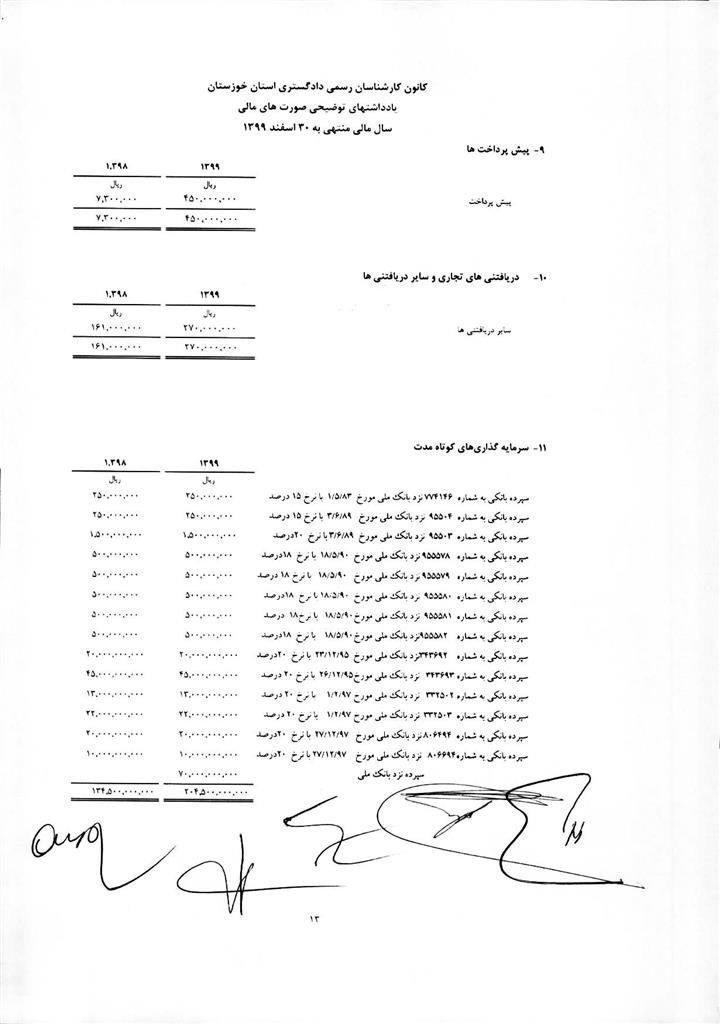 کانون کارشناسان رسمی دادگستری استان خوزستان
یادداشتهای توضیحی صورت های مالی
سال مالی منتهی به ۳۰ اسفند ۱۳۹۹
۹- پیش پرداخت ها
۱۳۹۹ ۱.۳۹۸
ریال ریال
پیش پرداخت ۴۵۰,۰۰۰,۰۰۰ ۷,۳۰۰,۰۰۰
۴۵۰,۰۰۰,۰۰۰ ۷,۳۰۰,۰۰۰
۱۰- دریافتنی های تجاری و سایر دریافتنی ها
۱۳۹۹ ۱.۳۹۸
ریال ریال
سایر دریافتنی ها ۲۷۰,۰۰۰,۰۰۰ ۱۶۱,۰۰۰,۰۰۰
۲۷۰,۰۰۰,۰۰۰ ۱۶۱,۰۰۰,۰۰۰
۱۱- سرمایه گذاری‌های کوتاه مدت
۱۳۹۹ ۱.۳۹۸
ریال ریال
سپرده بانکی به شماره ۷۷۴۱۴۶ نزد بانک ملی مورخ ۱/۵/۸۳ با نرخ ۱۵ درصد ۲۵۰,۰۰۰,۰۰۰ ۲۵۰,۰۰۰,۰۰۰
سپرده بانکی به شماره ۹۵۵۰۴ نزد بانک ملی مورخ ۳/۶/۸۹ با نرخ ۱۵ درصد ۲۵۰,۰۰۰,۰۰۰ ۲۵۰,۰۰۰,۰۰۰
سپرده بانکی به شماره ۹۵۵۰۳ نزد بانک ملی مورخ ۳/۶/۸۹ با نرخ ۲۰درصد ۱,۵۰۰,۰۰۰,۰۰۰ ۱,۵۰۰,۰۰۰,۰۰۰
سپرده بانکی به شماره ۹۵۵۵۷۸ نزد بانک ملی مورخ ۱۸/۵/۹۰ با نرخ ۱۸درصد ۵۰۰,۰۰۰,۰۰۰ ۵۰۰,۰۰۰,۰۰۰
سپرده بانکی به شماره ۹۵۵۵۷۹ نزد بانک ملی مورخ ۱۸/۵/۹۰ با نرخ ۱۸ درصد ۵۰۰,۰۰۰,۰۰۰ ۵۰۰,۰۰۰,۰۰۰
سپرده بانکی به شماره ۹۵۵۵۸۰ نزد بانک ملی مورخ ۱۸/۵/۹۰ با نرخ ۱۸درصد ۵۰۰,۰۰۰,۰۰۰ ۵۰۰,۰۰۰,۰۰۰
سپرده بانکی به شماره ۹۵۵۵۸۱ نزد بانک ملی مورخ ۱۸/۵/۹۰ با نرخ ۱۸ درصد ۵۰۰,۰۰۰,۰۰۰ ۵۰۰,۰۰۰,۰۰۰
سپرده بانکی به شماره ۹۵۵۵۸۲ نزد بانک ملی مورخ ۱۸/۵/۹۰ با نرخ ۱۸درصد ۵۰۰,۰۰۰,۰۰۰ ۵۰۰,۰۰۰,۰۰۰
سپرده بانکی به شماره ۳۴۳۶۹۲ نزد بانک ملی مورخ ۲۳/۱۲/۹۵ با نرخ ۲۰درصد ۲۰,۰۰۰,۰۰۰,۰۰۰ ۲۰,۰۰۰,۰۰۰,۰۰۰
سپرده بانکی به شماره ۳۴۳۶۹۳ نزد بانک ملی مورخ ۲۶/۱۲/۹۵ با نرخ ۲۰ درصد ۴۵,۰۰۰,۰۰۰,۰۰۰ ۴۵,۰۰۰,۰۰۰,۰۰۰
سپرده بانکی به شماره ۳۳۲۵۰۲ نزد بانک ملی مورخ ۱/۲/۹۷ با نرخ ۲۰ درصد ۱۳,۰۰۰,۰۰۰,۰۰۰ ۱۳,۰۰۰,۰۰۰,۰۰۰
سپرده بانکی به شماره ۳۳۲۵۰۳ نزد بانک ملی مورخ ۱/۲/۹۷ با نرخ ۲۰ درصد ۲۲,۰۰۰,۰۰۰,۰۰۰ ۲۲,۰۰۰,۰۰۰,۰۰۰
سپرده بانکی به شماره ۸۰۶۴۹۴ نزد بانک ملی مورخ ۲۷/۱۲/۹۷ با نرخ ۲۰درصد ۲۰,۰۰۰,۰۰۰,۰۰۰ ۲۰,۰۰۰,۰۰۰,۰۰۰
سپرده بانکی به شماره ۸۰۶۶۹۴ نزد بانک ملی مورخ ۲۷/۱۲/۹۷ با نرخ ۲۰درصد ۱۰,۰۰۰,۰۰۰,۰۰۰ ۱۰,۰۰۰,۰۰۰,۰۰۰
سپرده نزد بانک ملی ۷۰,۰۰۰,۰۰۰,۰۰۰
۲۰۴,۵۰۰,۰۰۰,۰۰۰ ۱۳۴,۵۰۰,۰۰۰,۰۰۰
۱۳